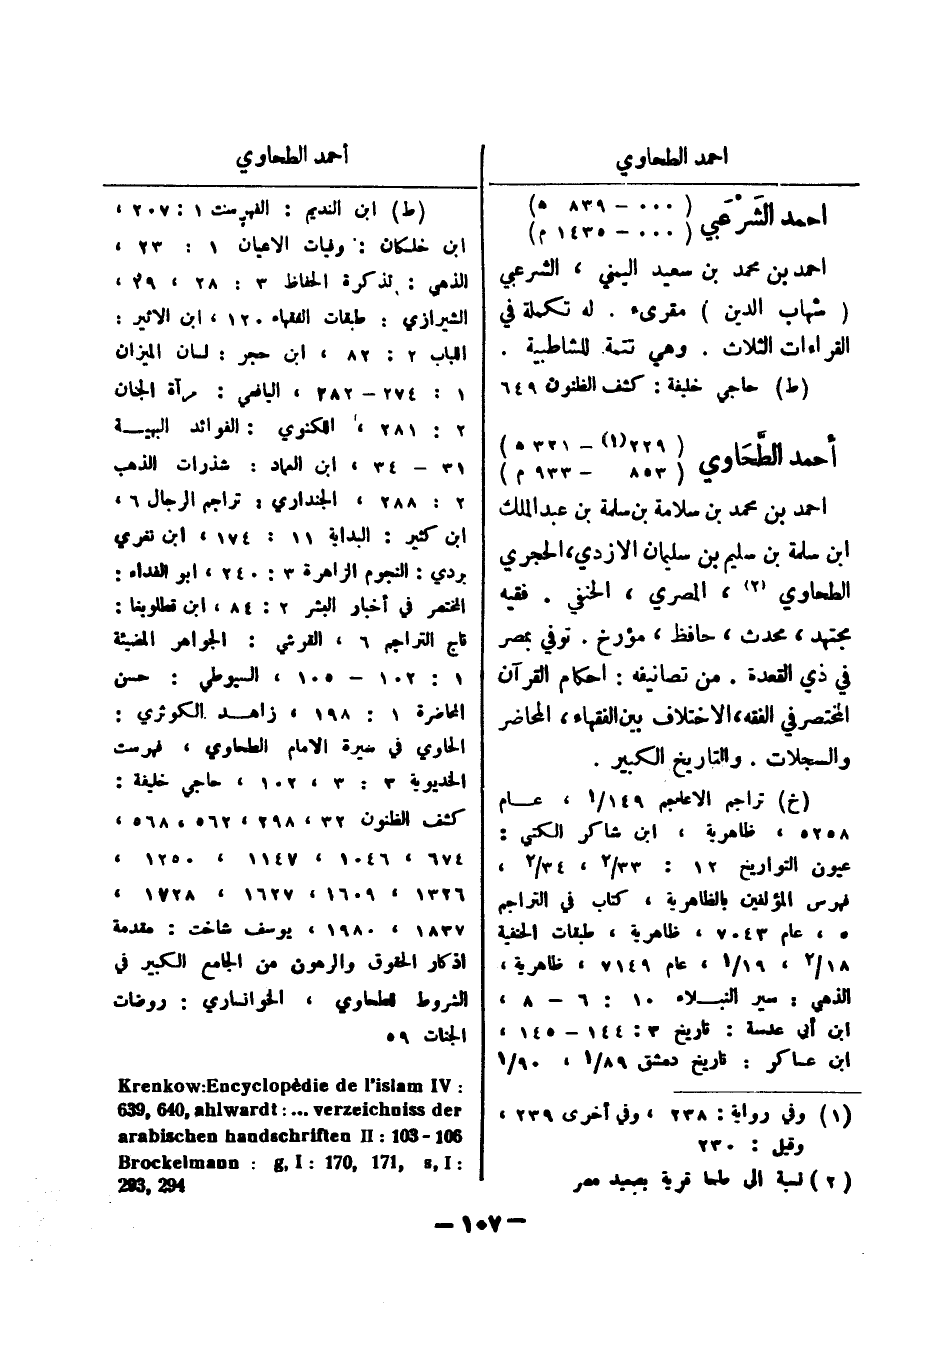 احمد الطحاوي
احمد الشَّرْعَبي ( ٠٠٠ – ٨٣٩ ه )
( ٠٠٠ – ١٤٣٥ م )
احمد بن محمد بن سعيد اليمني ، الشرعبي
( شهاب الدين ) مقرىء . له تكملة في
القراءات الثلاث . وهي تتمة للشاطبية .
(ط) حاجي خليفة : كشف الظنون ٦٤٩
أحمد الطَّحَاوي ( ٢٢٩(١) – ٣٢١ ه )
( ٨٥٣ – ٩٣٣ م )
احمد بن محمد بن سلامة بن سلمة بن عبدالملك
ابن سلمة بن سليم بن سليمان الازدي، الحجري
الطحاوي (٢) ، المصري ، الحنفي . فقيه
مجتهد ، محدث ، حافظ ، مؤرخ . توفي بمصر
في ذي القعدة . من تصانيفه : احكام القرآن
المختصر في الفقه، الاختلاف بين الفقهاء ، المحاضر
والسجلات . والتاريخ الكبير .
(خ) تراجم الاعاجم ١/١٤٩ ، عام
٥٢٥٨ ، ظاهرية ، ابن شاكر الكتبي :
عيون التواريخ ١٢ : ٢/٣٣ ، ٢/٣٤ ،
فهرس المؤلفين بالظاهرية ، كتاب في التراجم
٥ ، عام ٧٠٤٣ ، ظاهرية ، طبقات الحنفية
٢/١٨ ، ١/١٩ ، عام ٧١٤٩ ، ظاهرية ،
الذهبي : سير النبلاء ١٠ : ٦ – ٨ ،
ابن أبي عدسة : تاريخ ٣ : ١٤٤ – ١٤٥ ،
ابن عساكر : تاريخ دمشق ١/٨٩ ، ١/٩٠
(١) وفي رواية : ٢٣٨ ، وفي أخرى ٢٣٩ ،
وقيل : ٢٣٠
(٢) نسبة الى طحا قرية بصعيد مصر
أحمد الطحاوي
(ط) ابن النديم : الفهرست ١ : ٢٠٧ ،
ابن خلكان : وفيات الاعيان ١ : ٢٣ ،
الذهبي : تذكرة الحفاظ ٣ : ٢٨ ، ٢٩ ،
الشيرازي : طبقات الفقهاء ١٢٠ ، ابن الاثير :
اللباب ٢ : ٨٢ ، ابن حجر : لسان الميزان
١ : ٢٧٤ – ٢٨٢ ، اليافعي : مرآة الجنان
٢ : ٢٨١ ، اللكنوي : الفوائد البهية
٣١ – ٣٤ ، ابن العماد : شذرات الذهب
٢ : ٢٨٨ ، الجنداري : تراجم الرجال ٦ ،
ابن كثير : البداية ١١ : ١٧٤ ، ابن تغري
بردي : النجوم الزاهرة ٣ : ٢٤٠ ، ابو الفداء :
المختصر في أخبار البشر ٢ : ٨٤ ، ابن قطلوبغا :
تاج التراجم ٦ ، القرشي : الجواهر المضيئة
١ : ١٠٢ – ١٠٥ ، السيوطي : حسن
المحاضرة ١ : ١٩٨ ، زاهد الكوثري :
الحاوي في سيرة الامام الطحاوي ، فهرست
الخديوية ٣ : ٣ ، ١٠٢ ، حاجي خليفة :
كشف الظنون ٣٢ ، ٢٩٨ ، ٥٦٢ ، ٥٦٨ ،
٦٧٤ ، ١٠٤٦ ، ١١٤٧ ، ١٢٥٠ ،
١٣٢٦ ، ١٦٠٩ ، ١٦٢٧ ، ١٧٢٨ ،
١٨٣٧ ، ١٩٨٠ ، يوسف شاخت : مقدمة
اذكار الحقوق والرهون من الجامع الكبير في
الشروط للطحاوي ، الخوانساري : روضات
الجنات ٥٩
Krenkow:Encyclopédie de l'islam IV :
639, 640, ahlwardt : ... verzeichniss der
arabischen handschriften II : 103 - 106
Brockelmann : g, I : 170, 171, s, I :
293, 294
– ١٠٧ –